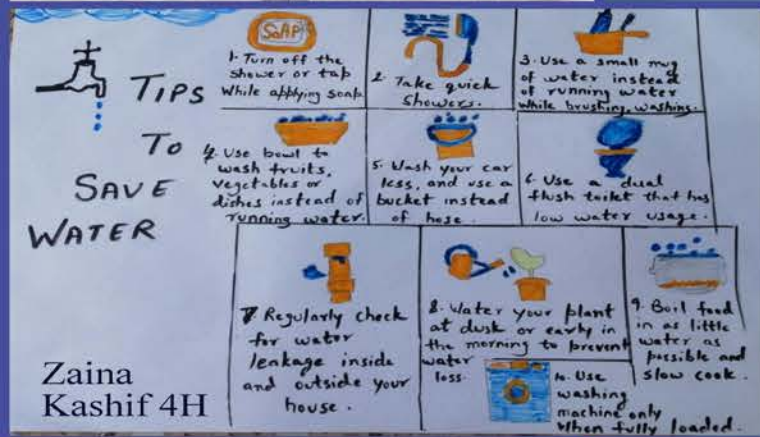 TIPS
TO
SAVE
WATER
SOAP
1. Turn off the
shower or tap
While applying soap
2. Take quick
showers.
3. Use a small mug
of water instead
of running water
While brushing, washing.
4. Use bowl to
wash fruits,
vegetables or
dishes instead of
running water.
5. Wash your car
less, and use a
bucket instead
of hose.
6. Use a dual
flush toilet that has
low water usage.
7 Regularly check
for water
leakage inside
and outside your
house.
8. Water your plant
at dusk or early in
the morning to prevent
water
loss.
9. Boil food
in as little
water as
possible and
slow cook.
10. Use
washing
machine only
When fully loaded.
Zaina
Kashif 4H